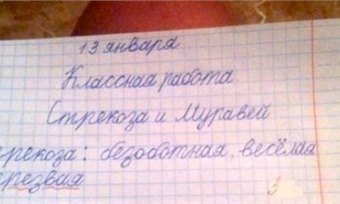 13 января
Классная работа
Стрекоза и Муравей
рекоза: безоботная, весёлая
резвая